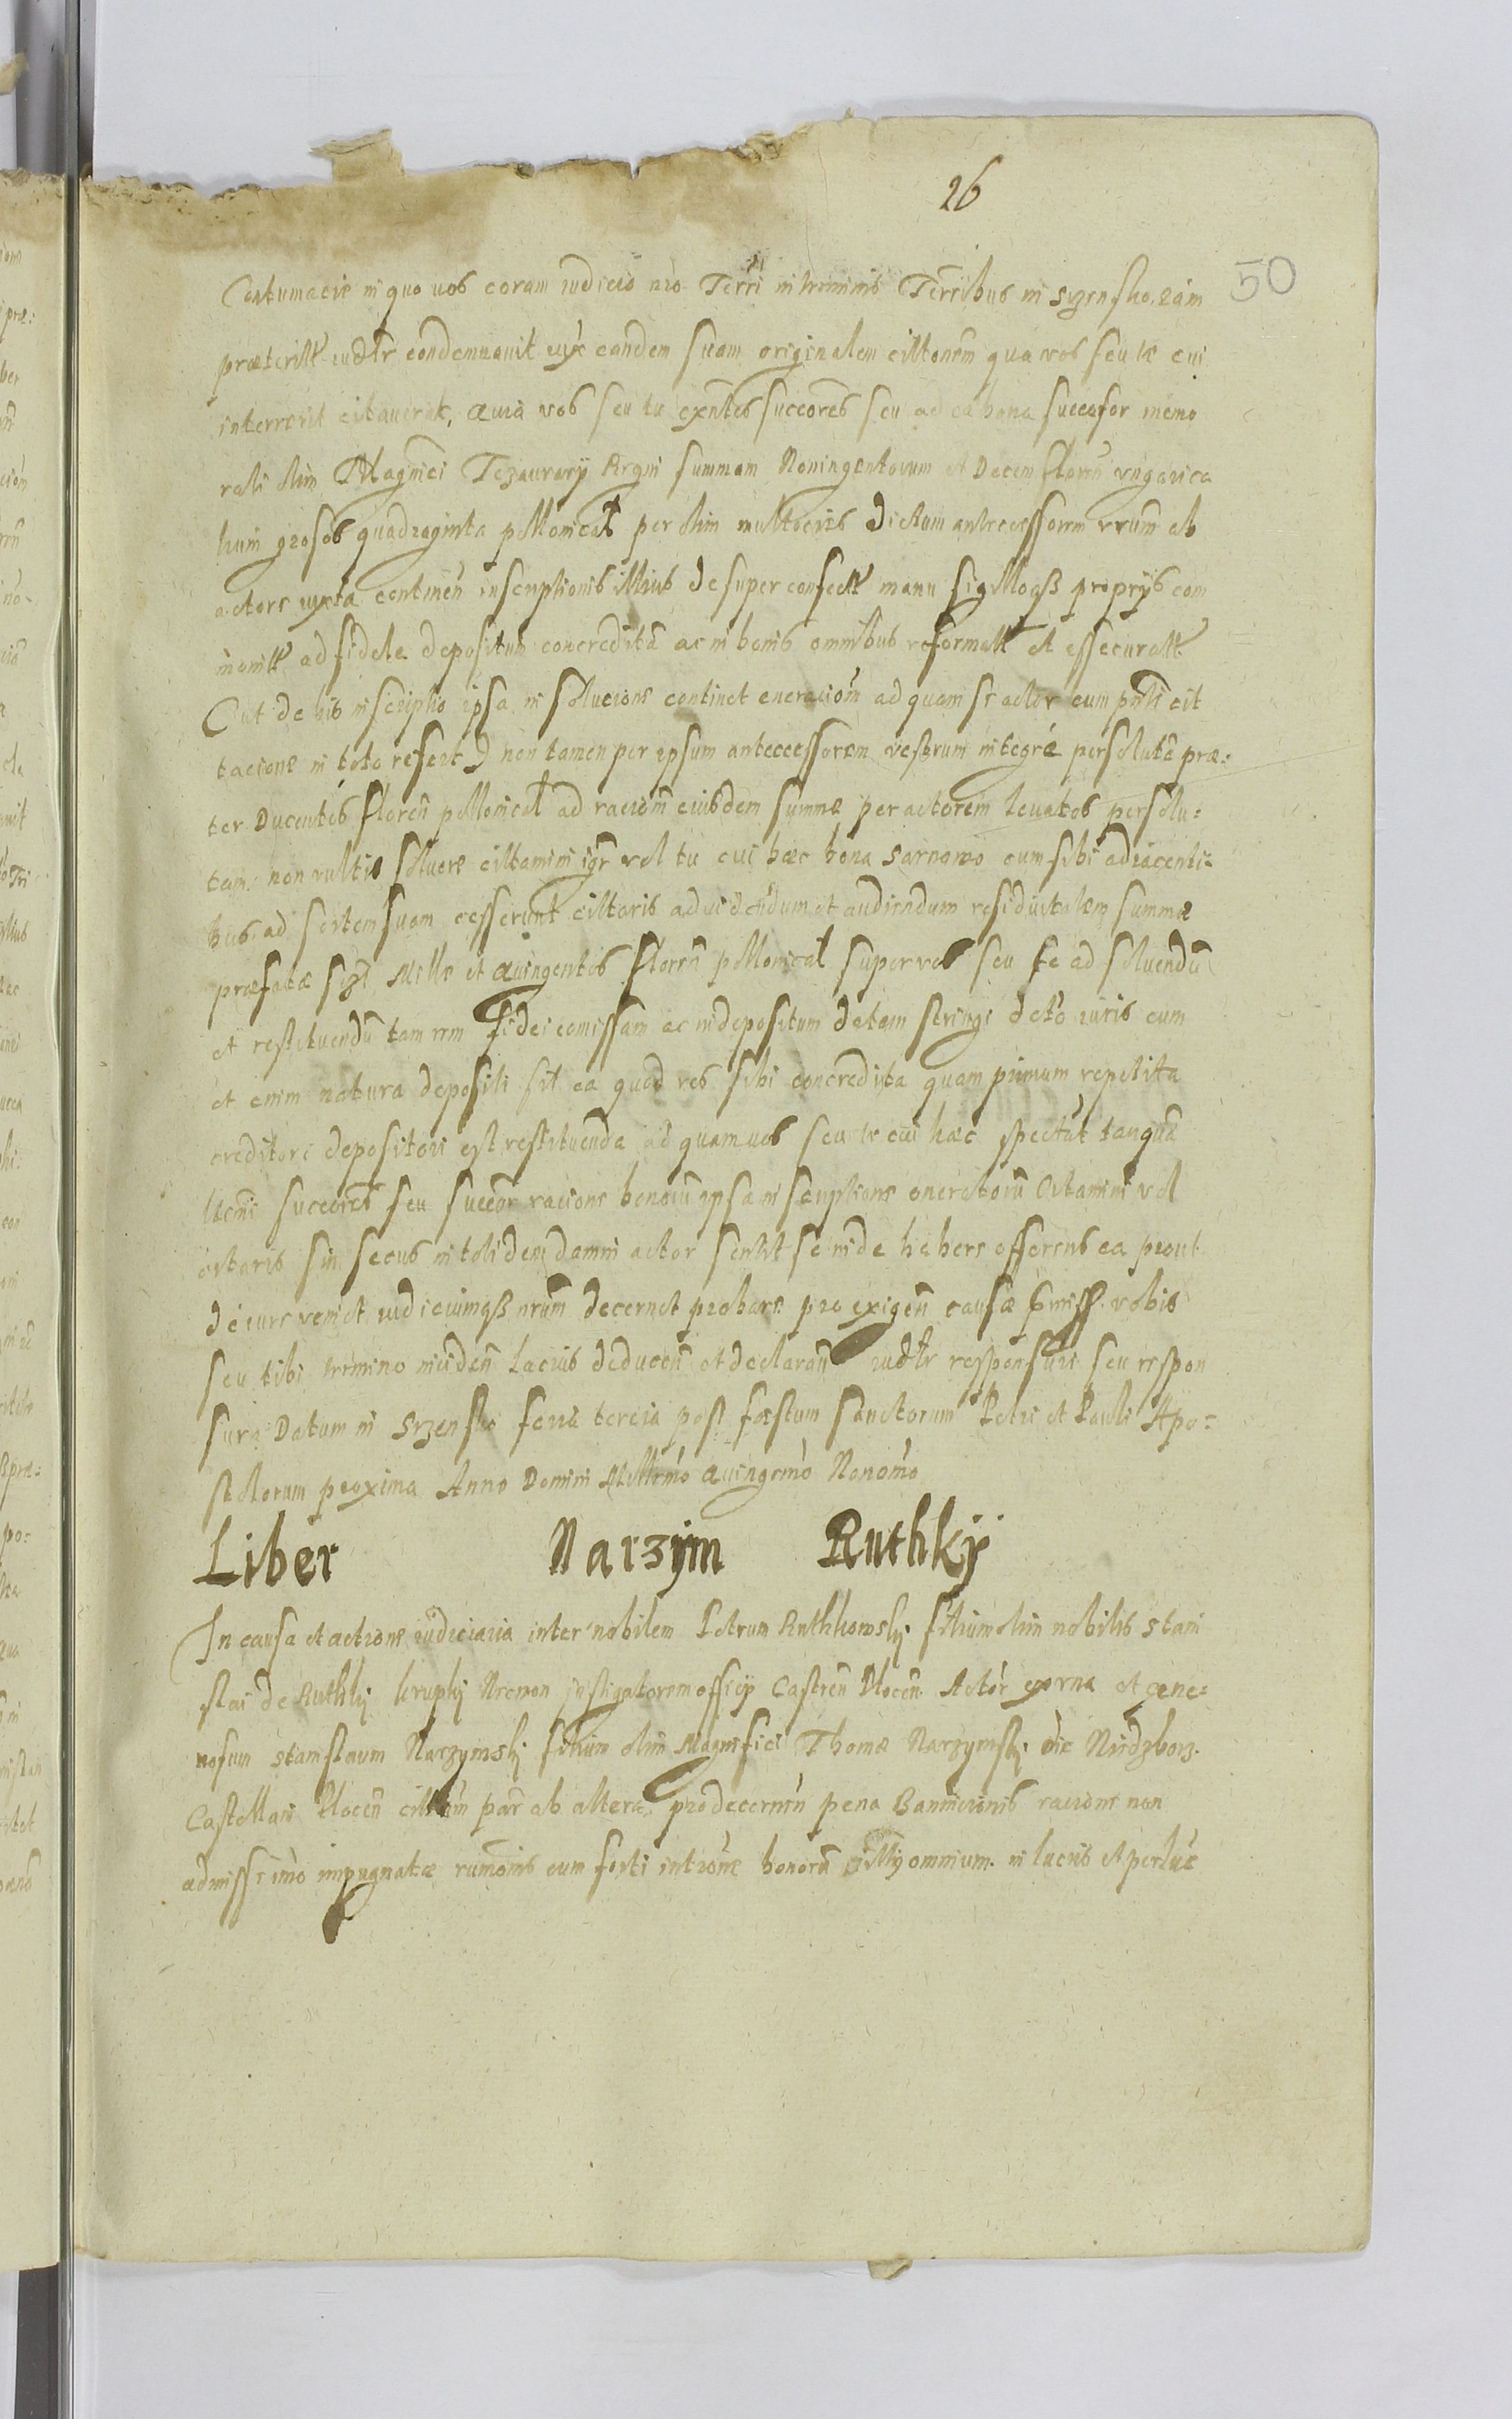 26
50
Contumacie in quo vos coram iudicio nro Terri in terminis Terribus in Srzensko, iam
præteritt iudtr condemnavit iux eandem suam originalem cittonem qua vos seu te cui
interrerit citaverat, Quia vos seu tu exntes succores seu ad ea bona succesor memo
rati olim Magnici Tezaurary Regni summam Noningentorum et Decem floren ungarica
lium grosos quadraginta pollonical per olim multocies dictum antecessorem vrum ab
actore iuxta continen inscriptionis illius desuper confectt manu sigilloqß proprys com
munitt ad fidele depositum concreditã ac in bonis omnibus reformatt et assecuratt
Cut de his inscriptio ipsa in solucione continet eneraciom ad quam se actor cum pnti cit
tacione in toto refert) non tamen per ipsum antecessorem vestrum integre persolutã præ-
ter Ducentos floren pollonicat ad raciom eiusdem summæ per actorem levatos persolu-
tam non vultis solvere cittamini igr vel tu cui hæc bona Sarnowo cum sibi adiacenti-
bus ad sortem suam cesserunt cittaris ad videndum et audiendum residuitatem summæ
præfatæ sczl Mille et Quingentos floren pollonical super vos seu te ad solvendũ
et restituendũ tam rem fidei comissam ac in depositum datam stringi decto iuris cum
et enim natura depositi sit ea quod res sibi concredita quam primum repetita
creditori depositori est restituenda ad quam vos seu te cui hæc spectat tanquã
ltemi succores seu succor racione bonorũ ipsa inscriptione oneratorũ Citamini vel
citaris sin secus in totidem damni actor sentit se inde habere offerens ea prout
de iure veniet iudiciumqß nrum decernet probare pro exigen causæ pmiss vobis
seu tibi termino incidem Lacius deducen et declaran iudtr responsuri seu respon
sura Datum in Srzensko feria tercia post festum Sanctorum Petri et Pauli Apo-
stolorum proxima Anno Domini Millemo Quingemo Nonomo
Liber Narzijm Ruthkij
In causa et actione iudiciaria inter nobilem Petrum Ruthkowskj filium olim nobilis Stani
slai de Ruthkj krupkj Necnon instigatorem officij Castren Plocen Actor exrna et gene-
rosum Stanislaum Narzymskj filium olim Magnifici Thomæ Narzymskj dic Nirdzborz.
Castellani Plocen cittum par ab altera pro decernen pena Bannicionis racione non
admissi imo impugnatæ rumonis cum forti introne bonorũ omnium in lacus et per luc